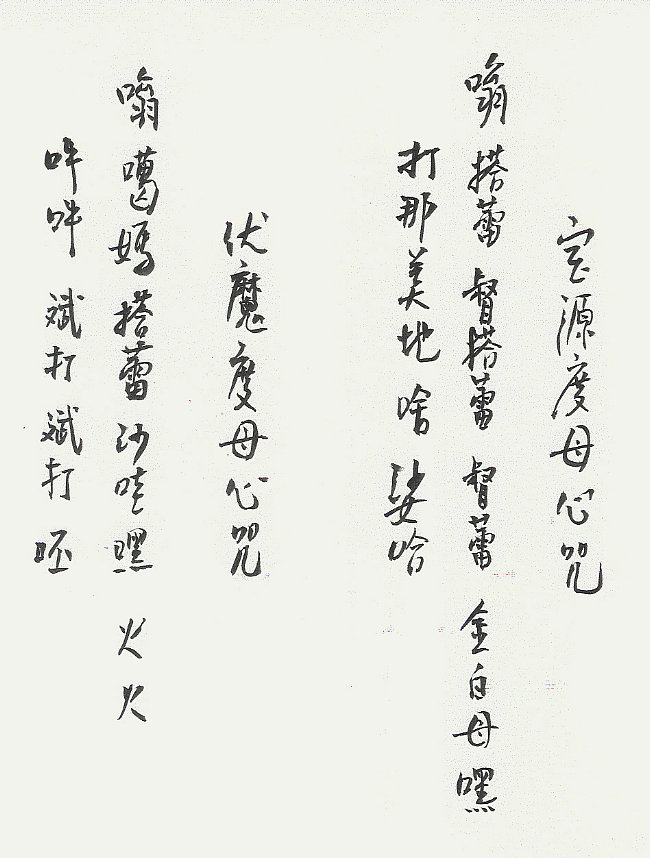 宝源度母心咒
嗡 搭蕾 督搭蕾 督蕾 金白母嘿
打那美地 啥 娑哈
伏魔度母心咒
嗡 噶媽搭蕾 沙哇嘿 火火
吽吽 斌打斌打 呸